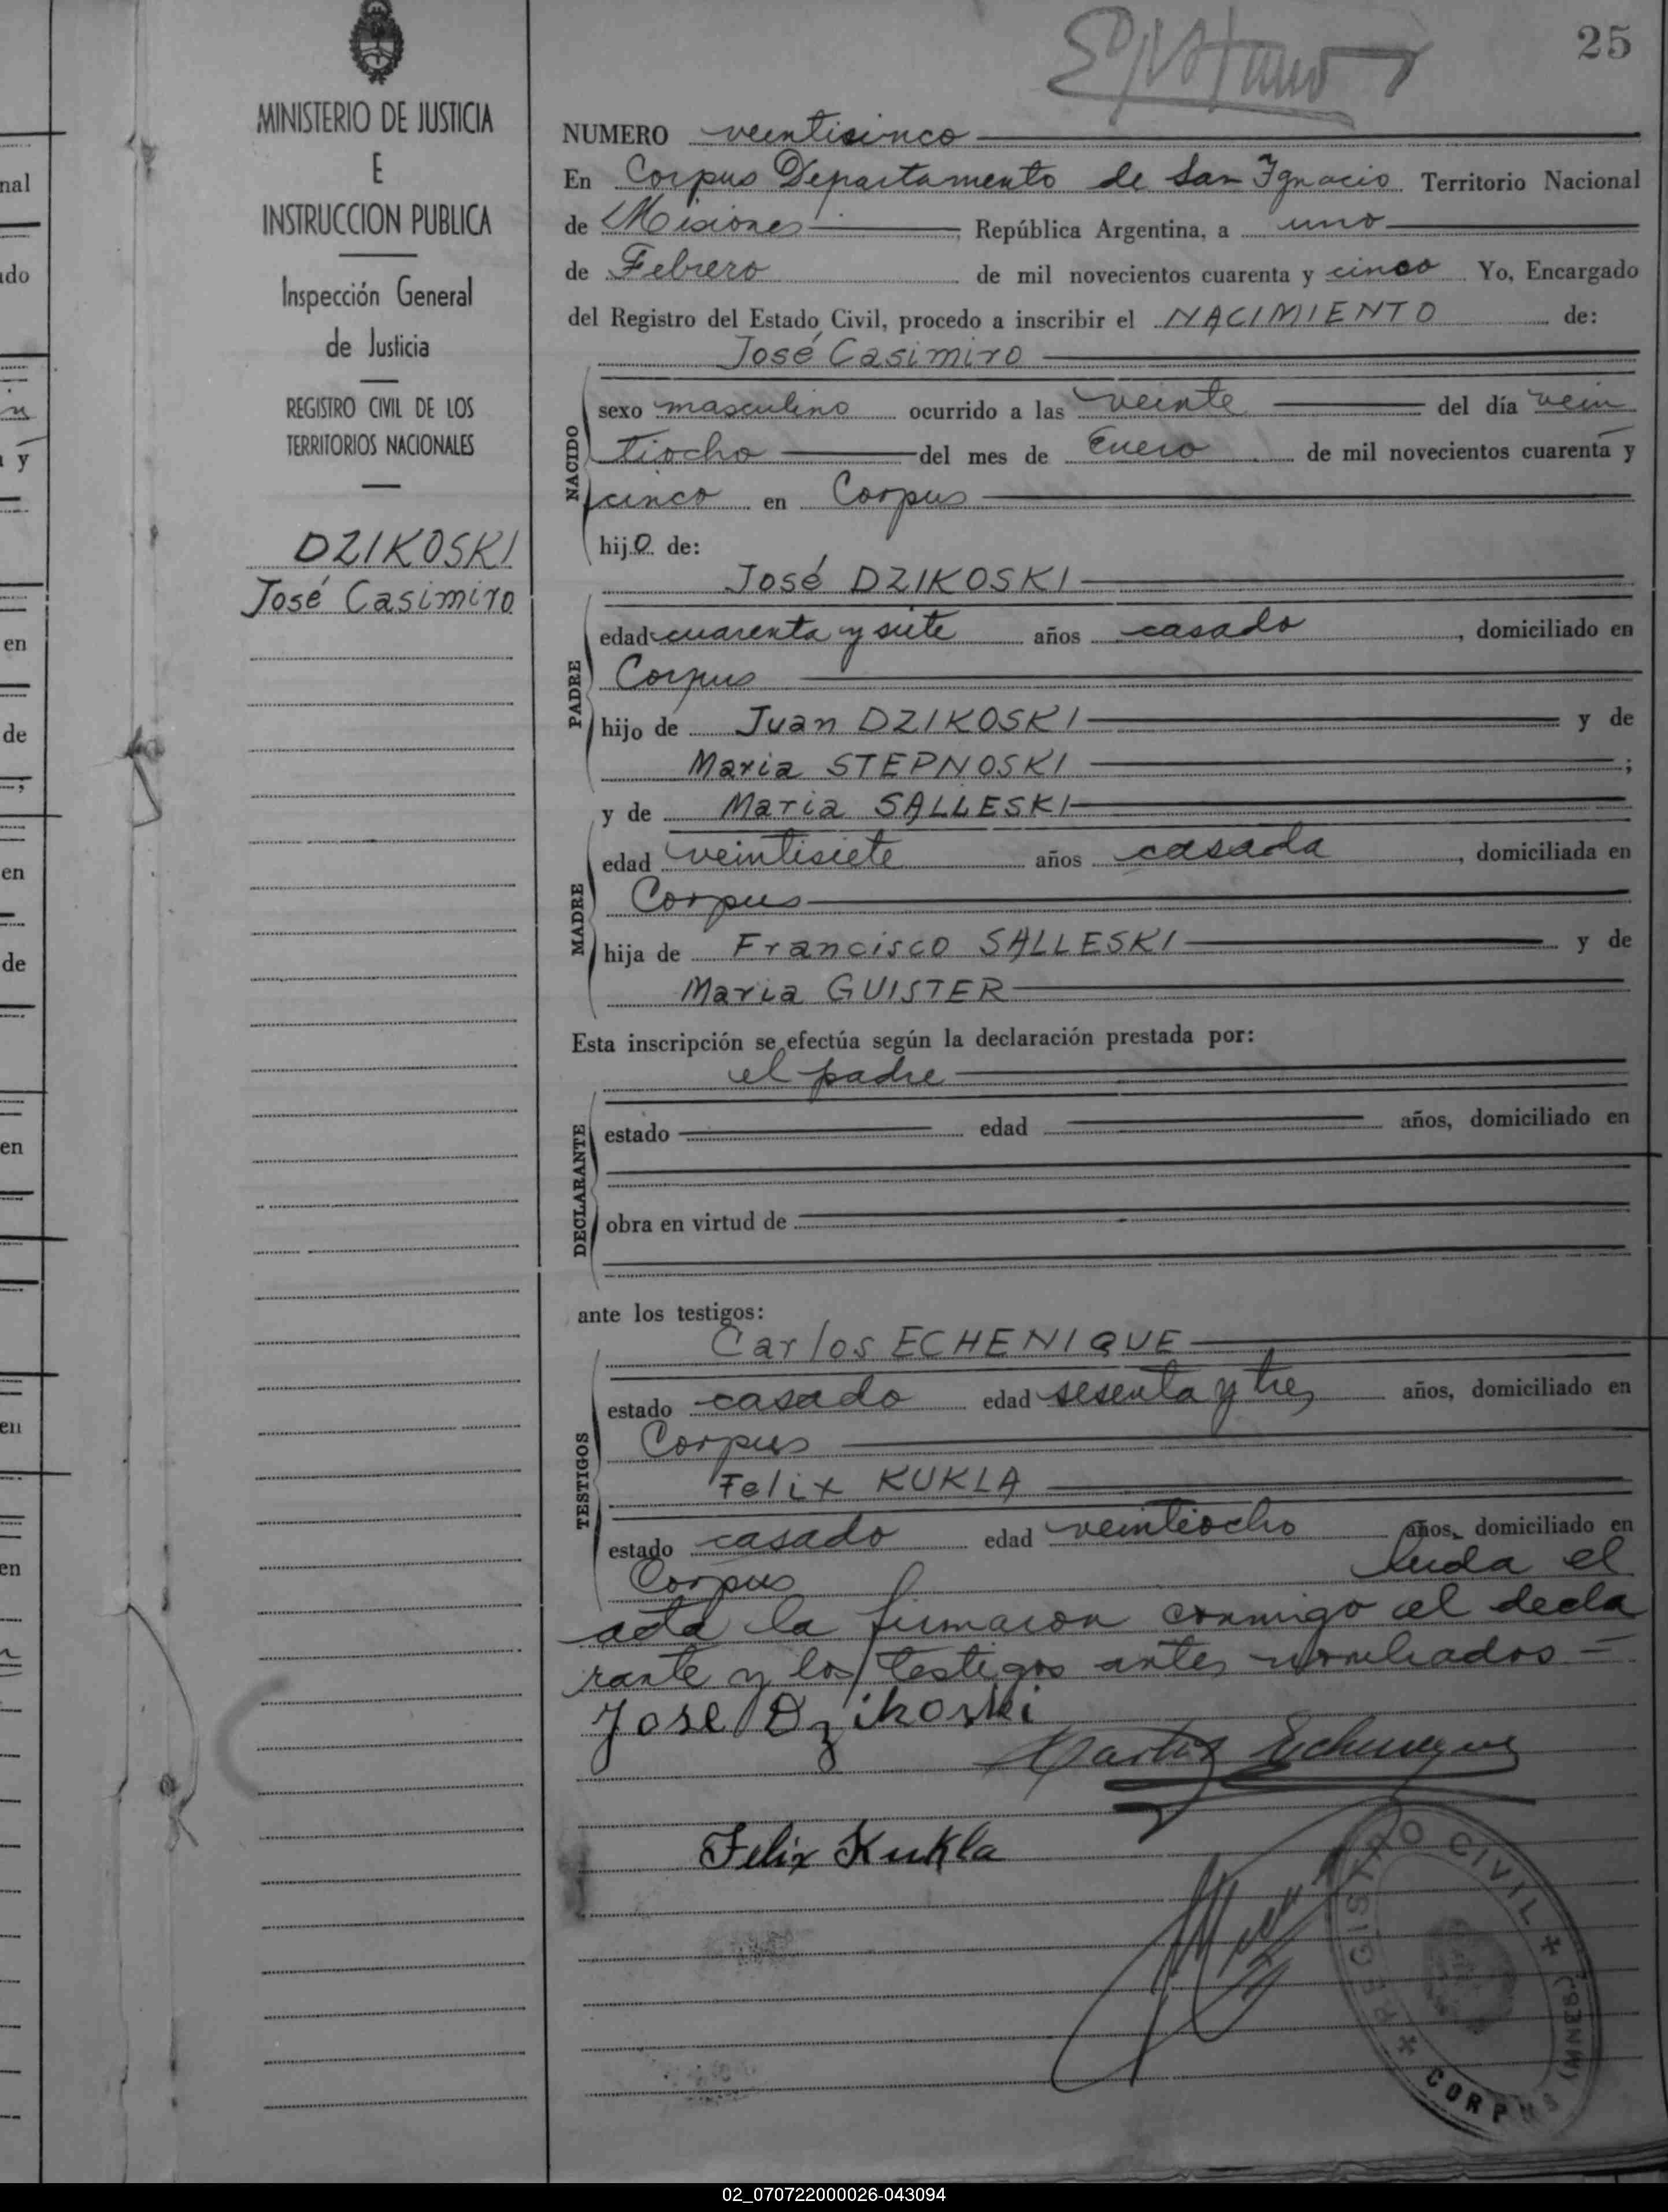 25
MINISTERIO DE JUSTICIA
E
INSTRUCCION PUBLICA
Inspección General
de Justicia
REGISTRO CIVIL DE LOS
TERRITORIOS NACIONALES
DZIKOSKI
José Casimiro
NUMERO veintisinco
En Corpus Departamento de San Ignacio Territorio Nacional
de Misiones, República Argentina, a uno
de Febrero de mil novecientos cuarenta y cinco Yo, Encargado
del Registro del Estado Civil, procedo a inscribir el NACIMIENTO de:
José Casimiro
NACIDO
sexo masculino ocurrido a las veinte del día vein
tiocho del mes de Enero de mil novecientos cuarenta y
cinco en Corpus
hijo de:
José DZIKOSKI
PADRE
edad cuarenta y siete años casado, domiciliado en
Corpus
hijo de Juan DZIKOSKI y de
Maria STEPNOSKI;
y de Maria SALLESKI
MADRE
edad veintisiete años casada, domiciliada en
Corpus
hija de Francisco SALLESKI y de
Maria GUISTER
Esta inscripción se efectúa según la declaración prestada por:
el padre
DECLARANTE
estado edad años, domiciliado en
obra en virtud de
ante los testigos:
Carlos ECHENIQUE
TESTIGOS
estado casado edad sesenta y tres años, domiciliado en
Corpus
Felix KUKLA
estado casado edad veintiocho años, domiciliado en
Corpus Leida el
acta la firmaron conmigo el decla
rante y los testigos antes nombrados
Jose Dzikoski
Carlos Echenique
Felix Kukla
REGISTRO CIVIL
CORPUS (MNES)
nal
ado
y
en
de
en
de
en
en
en
02_070722000026-043094